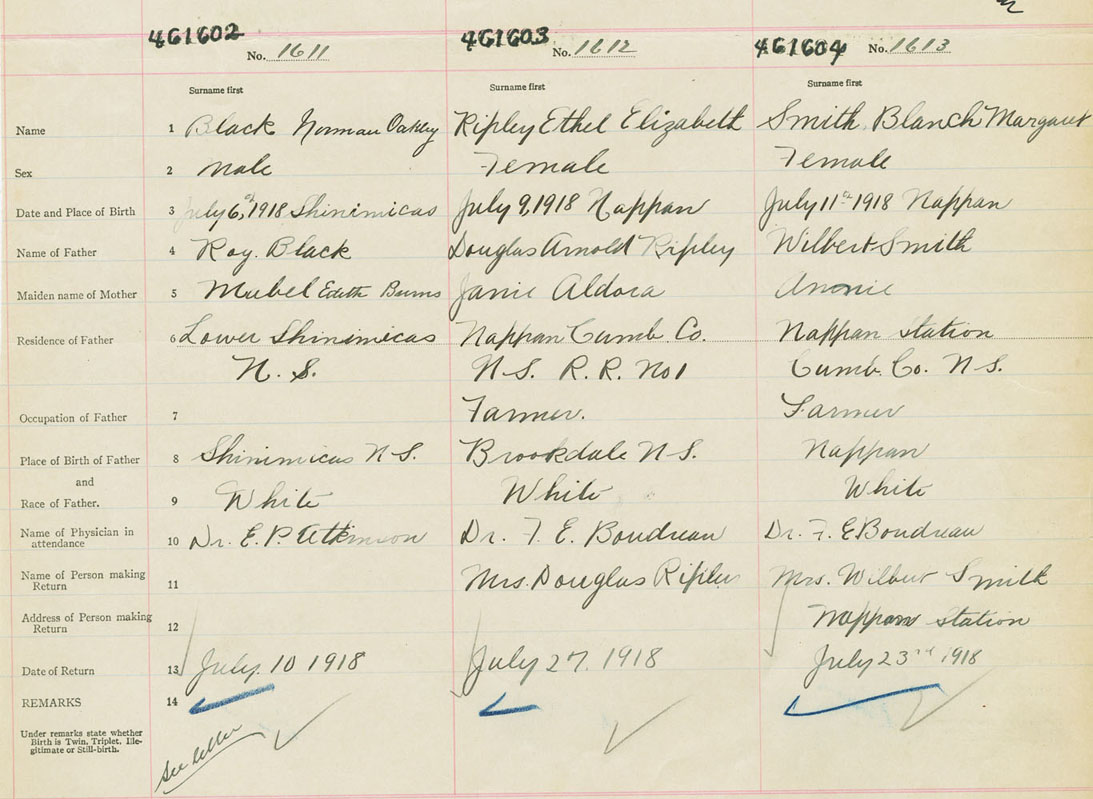 461602 No. 1611 461603 No. 1612 461604 No. 1613
Surname first Surname first Surname first
Name 1 Black Norman Oakley Ripley Ethel Elizabeth Smith Blanch Margaret
Sex 2 Male Female Female
Date and Place of Birth 3 July 6, 1918 Shinimicas July 9, 1918 Nappan July 11th 1918 Nappan
Name of Father 4 Roy. Black Douglas Arnold Ripley Wilbert Smith
Maiden name of Mother 5 Mabel Edith Burns Janie Aldora Annie
Residence of Father 6 Lower Shinimicas Nappan Cumb. Co. Nappan station
N. S. N.S. R. R. No 1 Cumb. Co. N.S.
Occupation of Father 7 Farmer. Farmer
Place of Birth of Father 8 Shinimicas N.S. Brookdale N.S. Nappan
and
Race of Father. 9 White White White
Name of Physician in
attendance 10 Dr. E. P. Atkinson Dr. F. E. Boudreau Dr. F. E Boudreau
Name of Person making
Return 11 Mrs. Douglas Ripley Mrs. Wilbert Smith
Address of Person making
Return 12 Nappan station
Date of Return 13 July. 10 1918 July 27. 1918 July 23rd 1918
REMARKS 14
Under remarks state whether
Birth is Twin, Triplet, Ille-
gitimate or Still-birth.
See letter